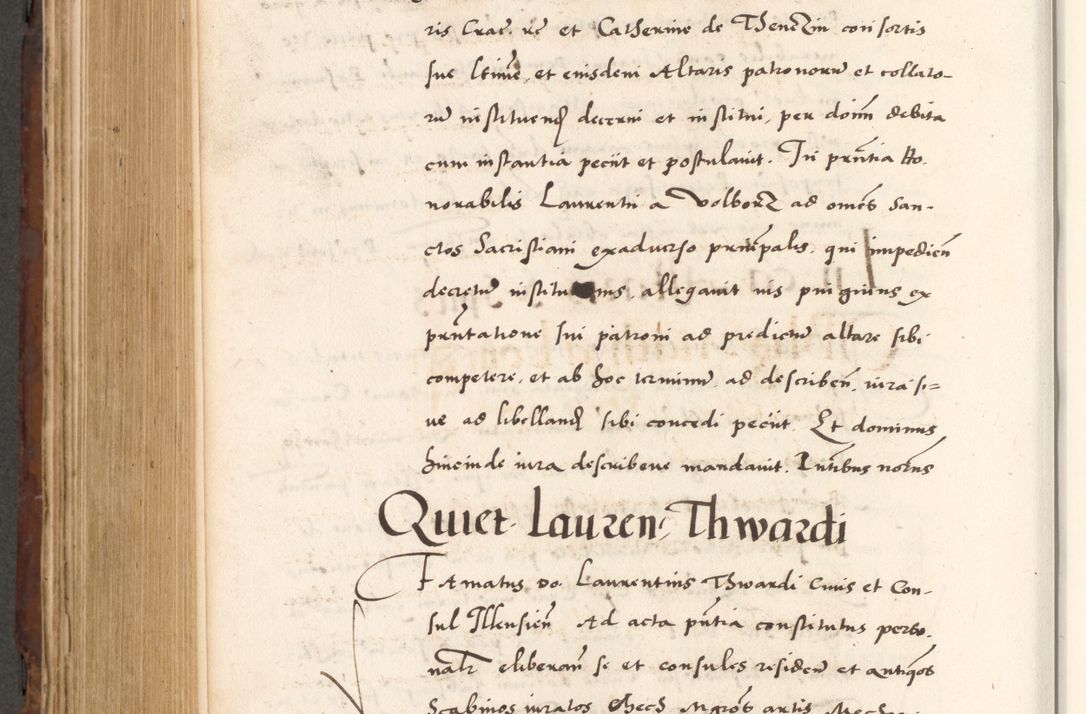 ris Crac. rc et Catherine de Thenczin consortis
sue le͞ime, et eiusdem Altaris patronoru͞ et collato-
ru͞ instituend decerni et institui, per do͞im debita
cum instantia peciit et postulauit. In pr͞ntia Ho.
norabilis Laurentii a Volborz ad om͞es San-
ctos Sacristiani exaduerso prin͞cpalis. qui impedien͞
decretu͞ allegauit ius ex
pr͞ntatione sui patroni ad predictu͞ altare sibi
competere, et ab hoc terminu͞ ad describen͞. iura si=
ue ad libelland sibi concedi peciit. Et dominus
hincinde iura describere mandauit. no͞rus
Quiet. Lauren: Thwardi
Famatus do. Laurentius Thwardi Ciuis et Con-
sul Ilkusien͞ Ad acta p͞ntia constitutus perso.
nalr eliberan͞ se et consules residen͞ et antiqos
Scabinos iuratos artis